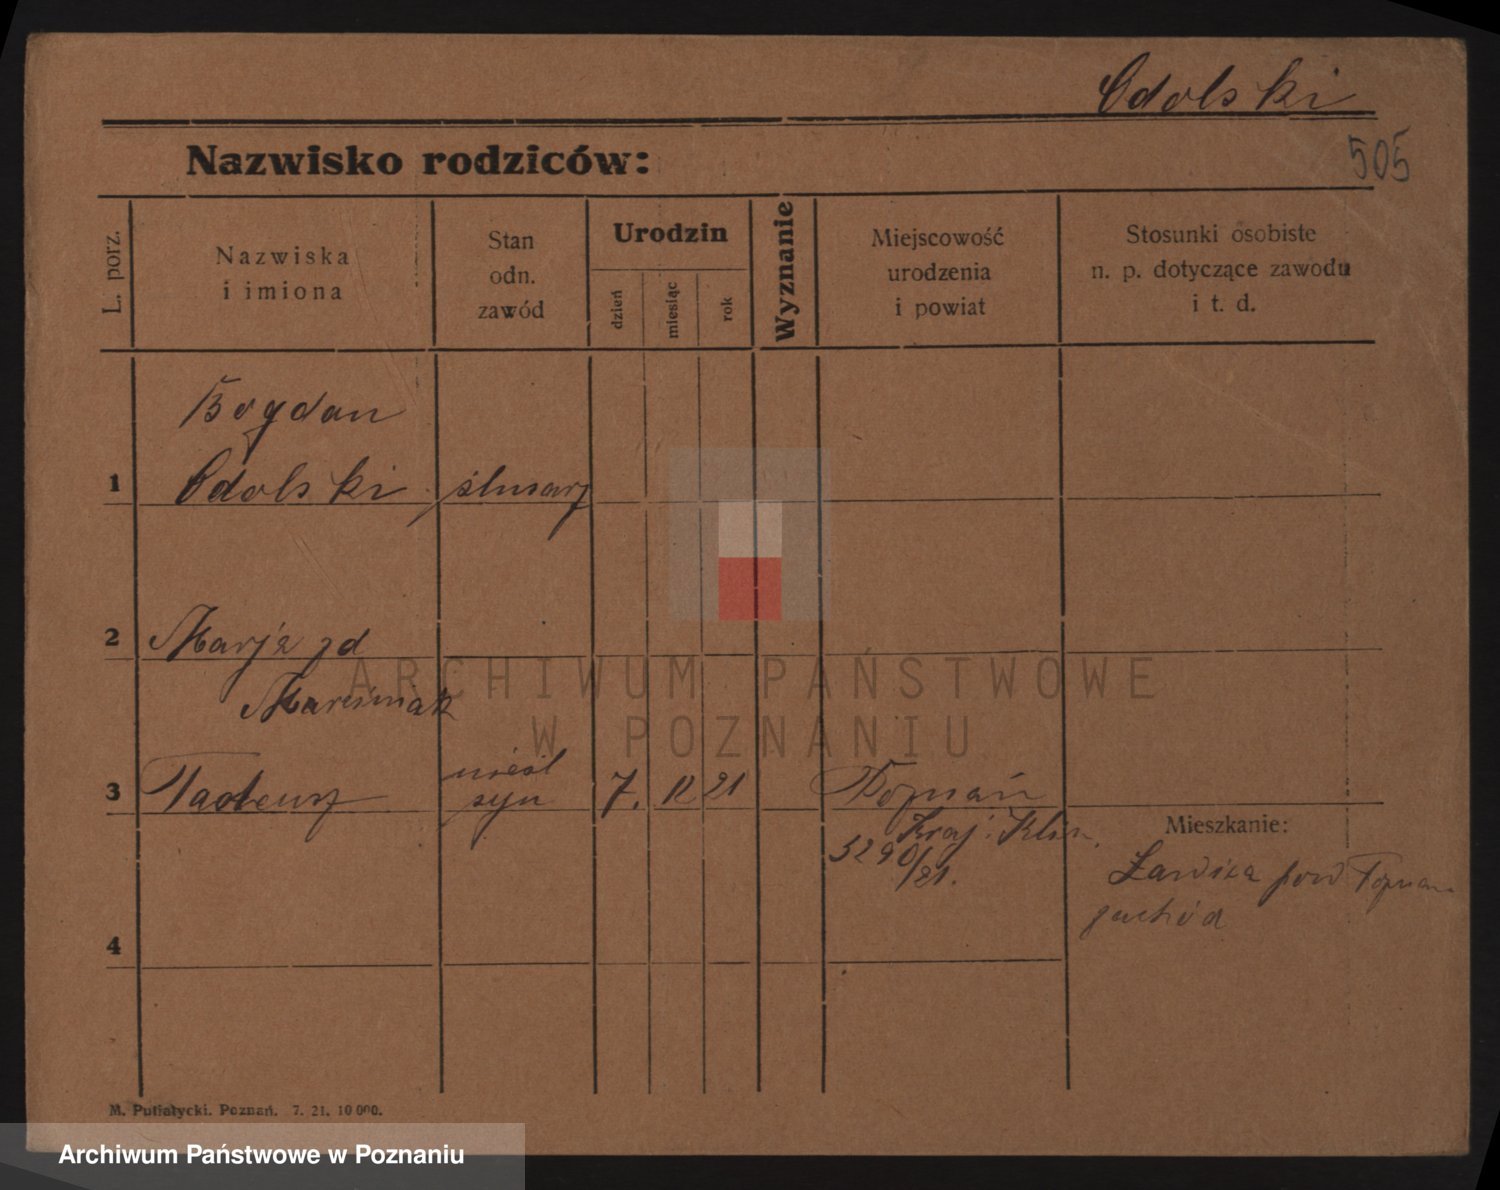 Odolski
Nazwisko rodziców:
505
L. porz.
Nazwiska
i imiona
Stan
odn.
zawód
Urodzin
dzień
miesiąc
rok
Wyznanie
Miejscowość
urodzenia
i powiat
Stosunki osobiste
n. p. dotyczące zawodu
i t. d.
Bogdan
1 Odolski ślusarz
2 Marja zd
Marciniak
3 Tadeusz
syn 7. 12 21 Poznań
Kraj. Klin.
3290/21.
Mieszkanie:
Ławica pow Poznań
zachód
4
M. Putiatycki. Poznań. 7. 21. 10 000.
ARCHIWUM PAŃSTWOWE
W POZNANIU
Archiwum Państwowe w Poznaniu